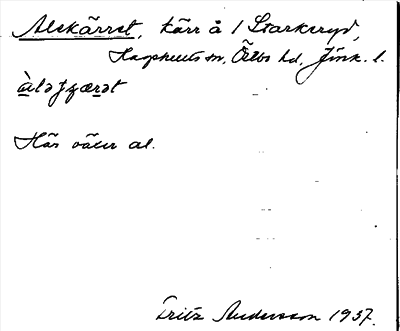 Alekärret, kärr å 1 Starkeryd,
Hagshults sn, Östbo hd, Jönk. l.
àləʃçærət
Här växer al.
Fritz Andersson 1937.